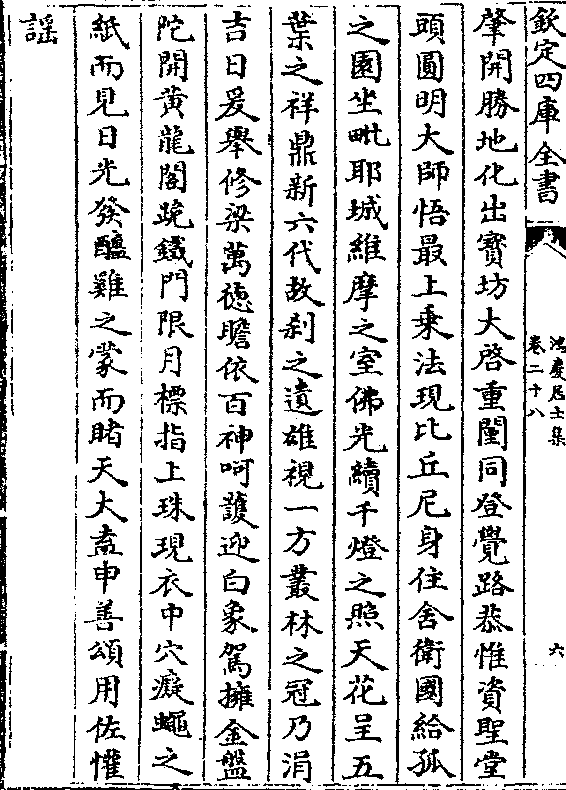 欽定四庫全書
鴻慶居士集
卷二十八
六
肇開勝地化出寳坊大啓重闉同登覺路恭惟資聖堂
頭圓明大師悟最上乗法現比丘尼身住舍衛國給孤
之園坐毗耶城維摩之室佛光續千燈之照天花呈五
葉之祥鼎新六代故刹之遺雄視一方叢林之冠乃涓
吉日爰舉修梁萬徳瞻依百神呵䕶迎白象駕擁金盤
陀開黄龍閣跪鐵門限月標指上珠現衣中穴癡蠅之
紙而見日光發醯雞之䝉而睹天大盍申善頌用佐懽
謡